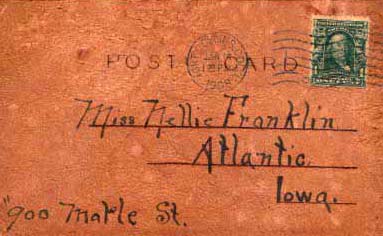 POST CARD
Miss Nellie Franklin
Atlantic
Iowa.
"900 Maple St.